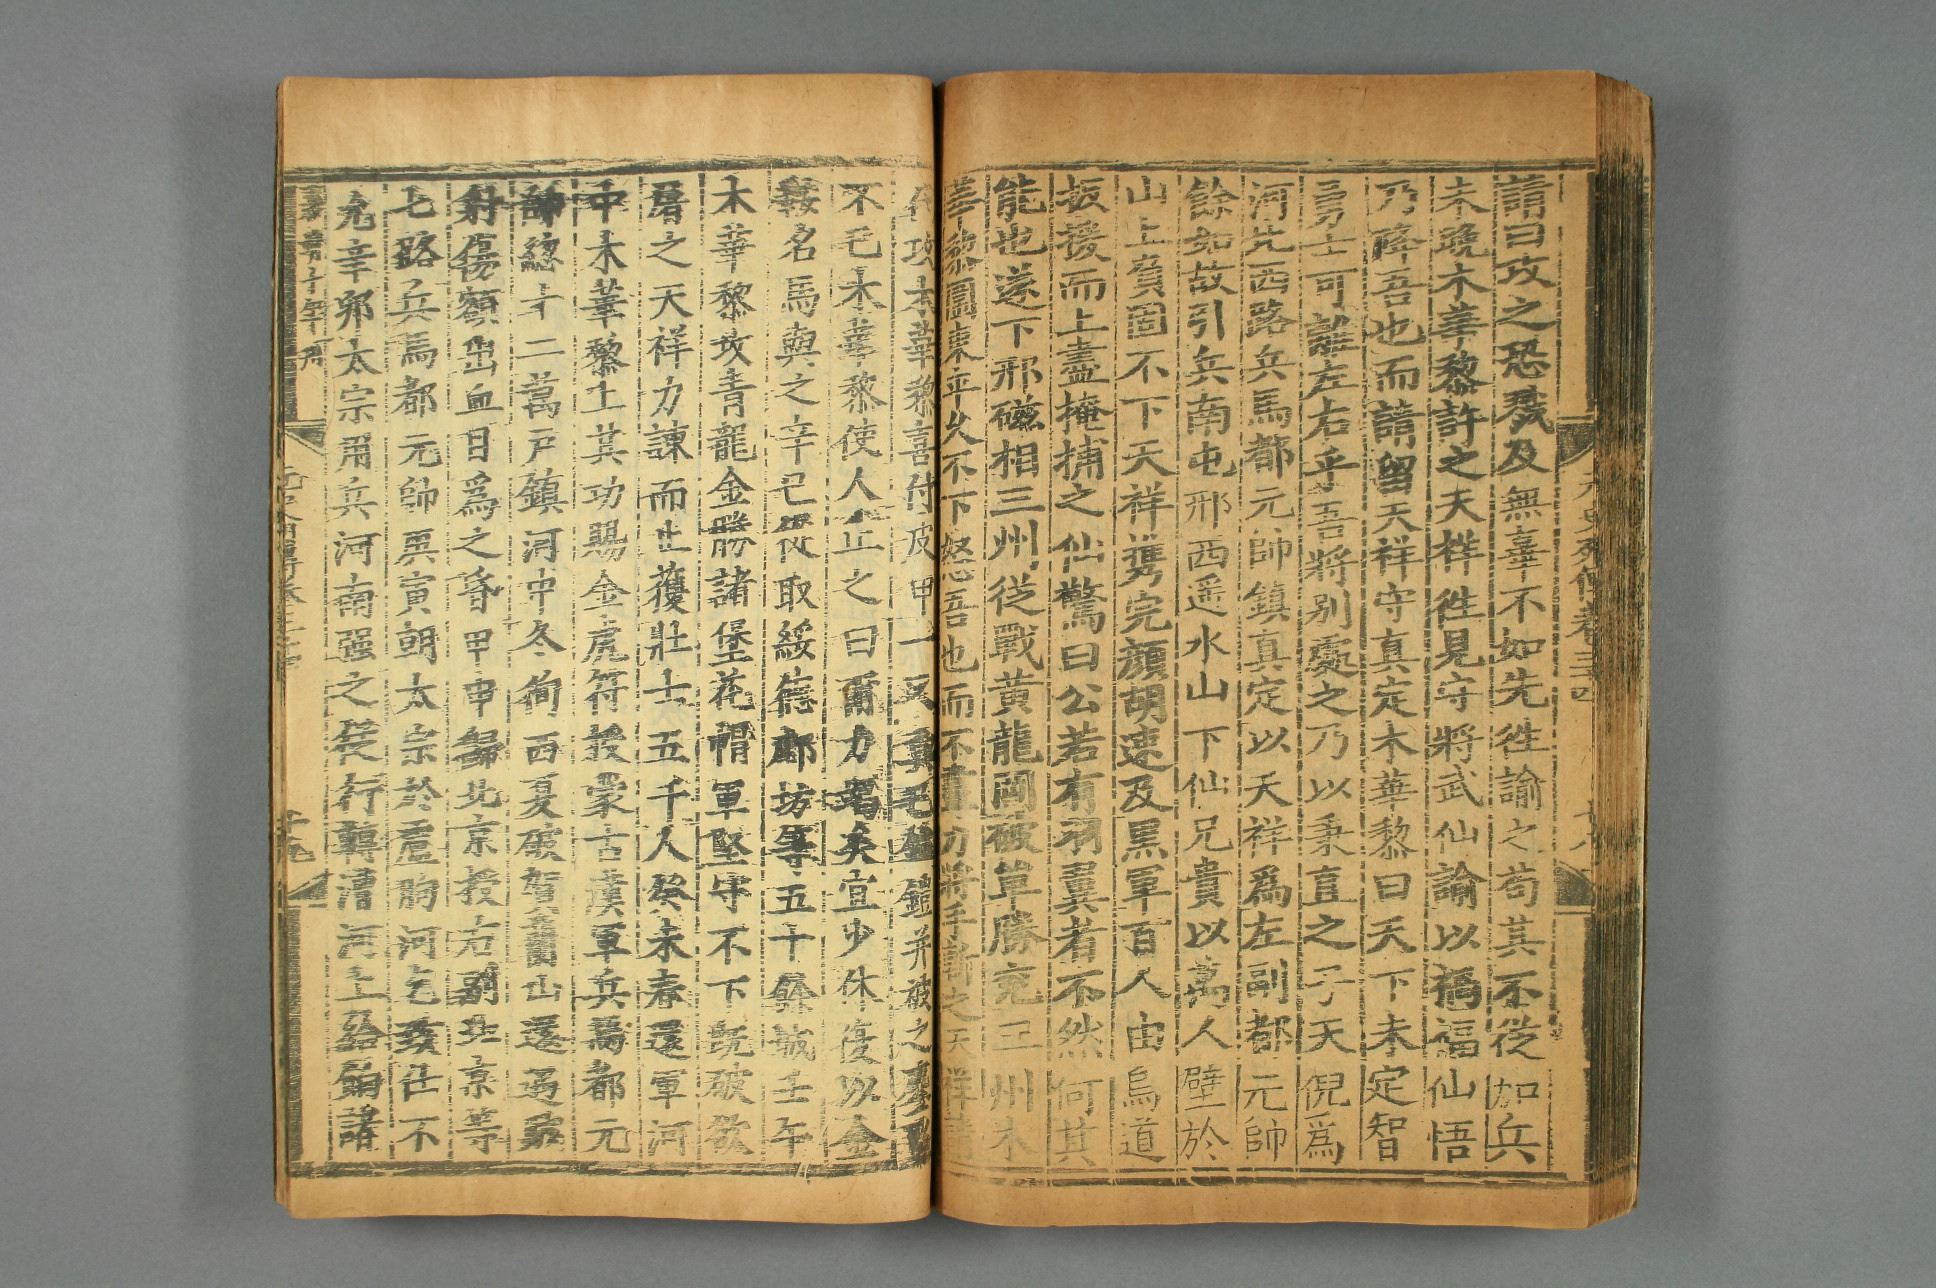 請曰攻之恐殘及無辜不如先徃諭之苟其不從加兵
未晚木華黎許之天祥徃見守將武仙諭以禍福仙悟
乃降吾也而請留天祥守真定木華黎曰天下未定智
勇士可離左右乎吾將别處之乃以秉直之子天倪爲
河北西路兵馬都元帥鎮真定以天祥爲左副都元帥
餘如故引兵南屯邢西遥水山下仙兄貴以萬人壁於
山上負固不下天祥攜完顔胡速及黑軍百人由鳥道
扳援而上盡掩捕之仙驚曰公若有羽翼者不然何其
能也遂下邢磁相三州從戰黄龍岡破單勝兗三州木
華黎圍東平久不下怒吾也而不盡力將手斬之天祥請
代攻木華黎喜付皮甲一
不毛木華黎使人止之曰爾力竭矣宜少休復以金
鞍名馬與之辛巳從取綏德鄜坊等五十餘城壬午
木華黎攻青龍金勝諸堡花帽軍堅守不下旣破欲
屠之天祥力諫而止獲壯士五千人癸未春還軍河
中木華黎上其功賜金虎符授蒙古漢軍兵馬都元
帥緫十二萬戸鎮河中冬徇西夏破賀蘭山還遇
射傷額出血目爲之昏甲申歸北京授右副北京等
七路兵馬都元帥庚寅朝太宗於盧朐河乞致仕不
允辛卯太宗用兵河南强之從行轉漕河上給餉諸
元史列傳卷三十四